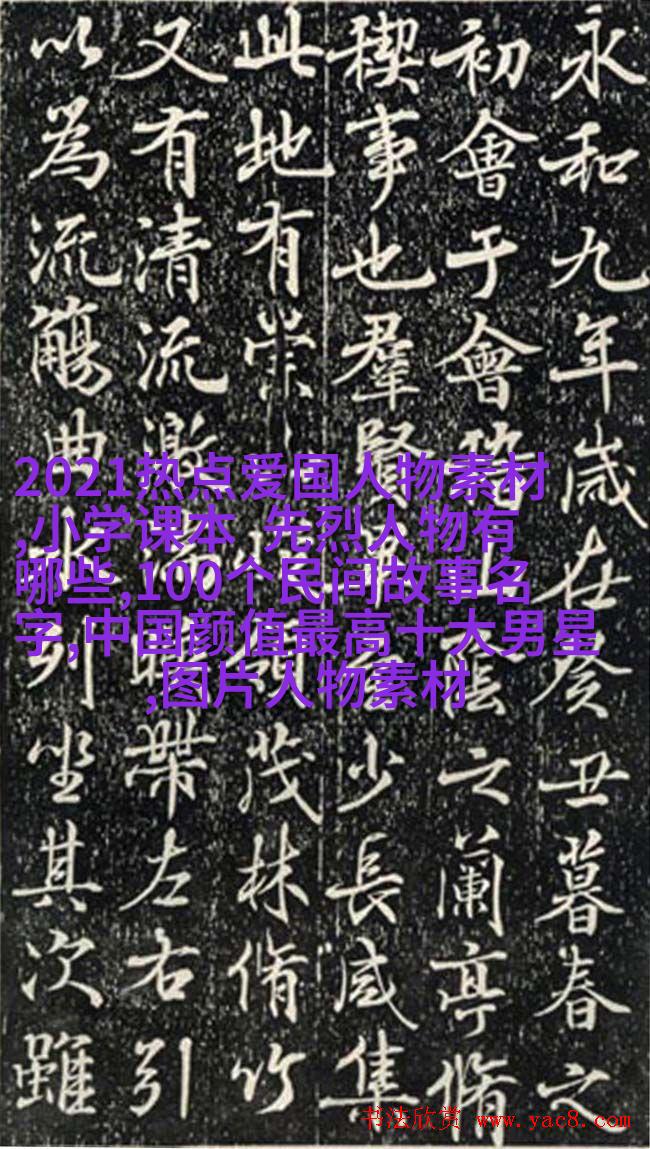 永和九年歲在癸丑暮春之
初會于會山陰之蘭亭脩
稧事也羣賢少長咸集
此地有崇茂林脩竹
又有清流激帶左右引
以爲流觴曲列坐其次雖
2021热点爱国人物素材
,小学课本  先烈人物有
哪些,100个民间故事名
字,中国颜值最高十大男星
,图片人物素材
书法欣赏 www.yac8.com